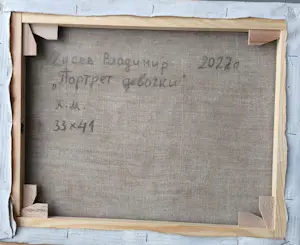 Гусев Владимир 2022г
„Портрет девочки"
х.м.
33×41